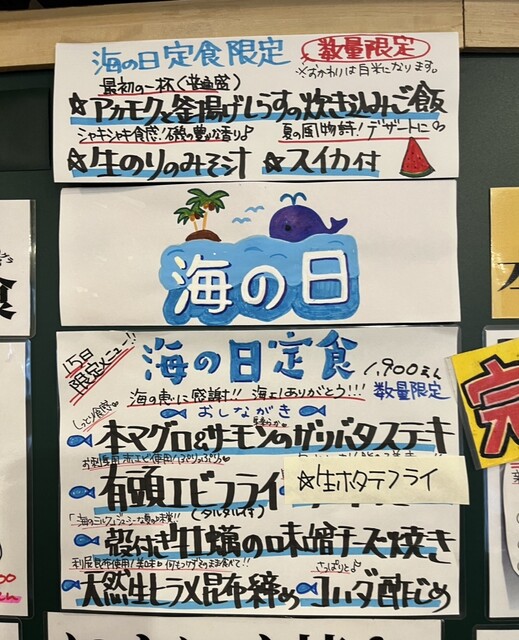 海の日定食限定 数量限定
※おかわりは白米になります。
最初の一杯(普通盛)
☆アカモクと釜揚げしらすの炊き込みご飯
シャキシャキ食感!磯の豊かな香り♪ 夏の風物詩!デザートに♡
☆生のりのみそ汁 ☆スイカ付
海の日
15日限定メニュー!!
海の日定食 1,900えん
海の恵に感謝!! 海よ!ありがとう!!! 数量限定
おしながき
しっとり食感
本マグロ&サーモンのガリバタステーキ
お刺身用赤エビ使用!ぷりっぷり♡
有頭エビフライ
(タルタル付き)
☆生ホタテフライ
「海のミルク」ジューシーな夏の味覚!!
殻付き牡蠣の味噌チーズ焼き
利尻昆布使用! さっぱりと♪
天然生ヒラメ昆布締め コハダ酢じめ
完